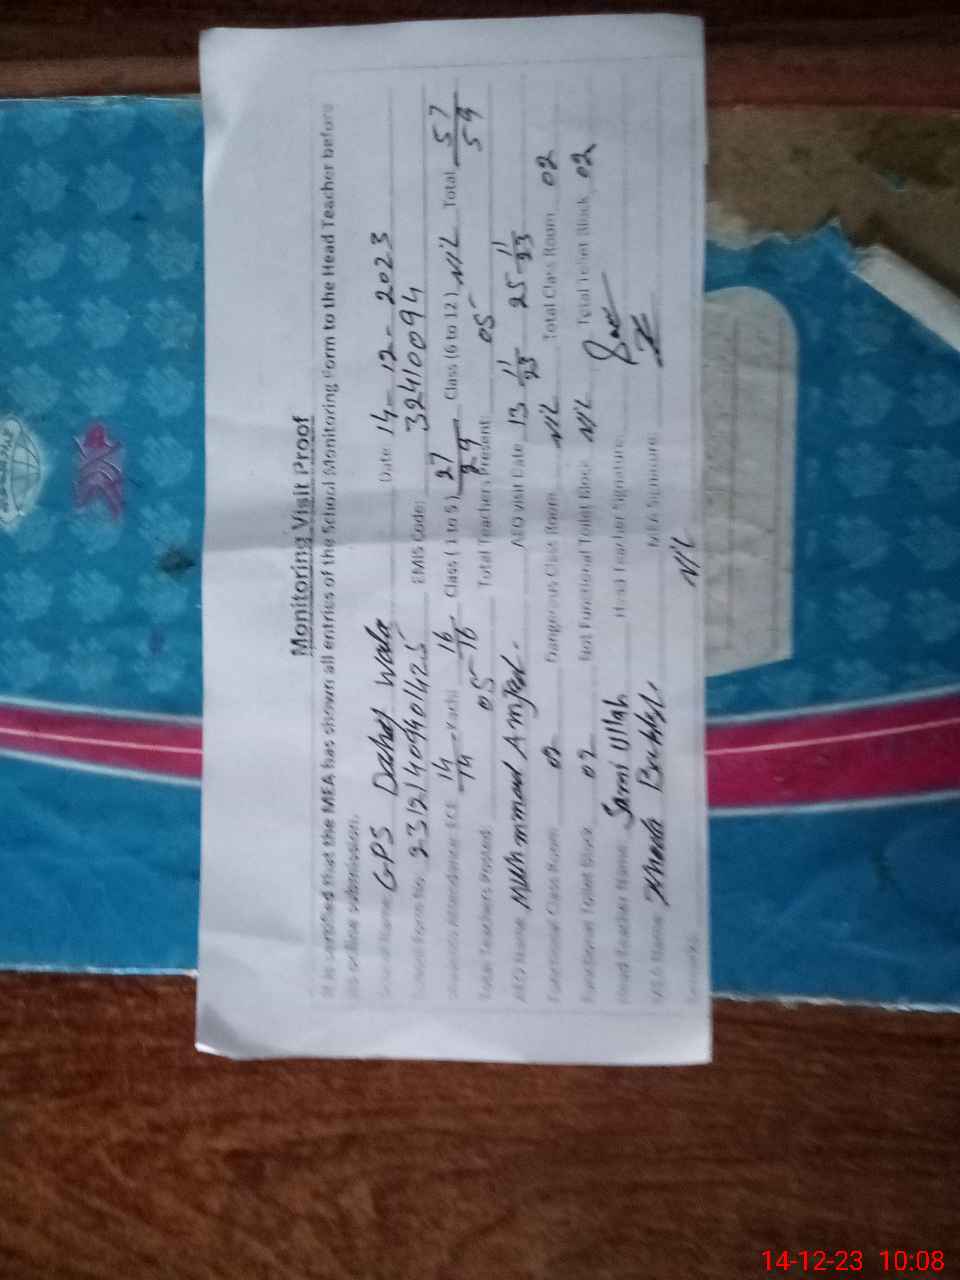 Monitoring Visit Proof
It is certified that the MEA has shown all entries of the School Monitoring Form to the Head Teacher before
online submission.
School Name: GPS Daher Wala Date: 14-12-2023
Form No. EMIS Code: 32410094
Students Attendance ECE 14/14 Kachi 16/16 Class (1 to 5) 27/29 Class (6 to 12) NIL Total 57/59
Total Teachers Posted: 05 Total Teachers Present: 05
AEO Name Muhmmad Amjed. AEO Visit Date 13 11/23 25 11/23
Functional Class Room: 02 Dangerous Class Room: NIL Total Class Room 02
Functional Toilet Block: 02 Not Functional Toilet Block NIL Total Toilet Block 02
Head Teacher Name Sami Ullah Head Teacher Signature:
MEA Name Bukhsh MEA Signature:
NIL
14-12-23 10:08